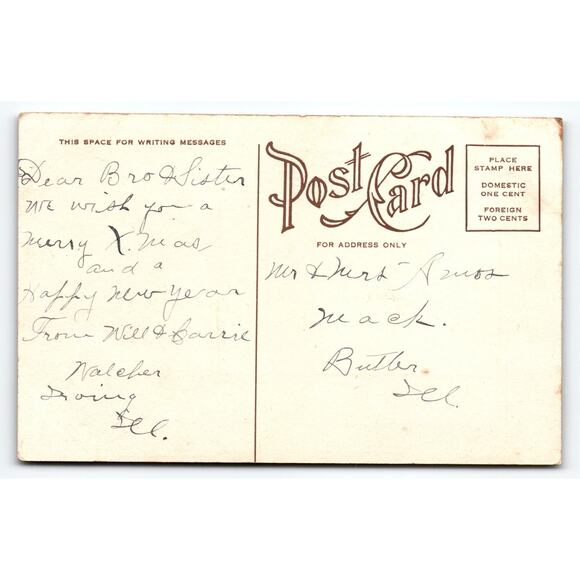 THIS SPACE FOR WRITING MESSAGES
Dear Bro & Sister
we wish you a
merry X.mas
and a
Happy New Year
From Will & Carrie
Walcher
Irving
Ill.
Post Card
FOR ADDRESS ONLY
PLACE
STAMP HERE
DOMESTIC
ONE CENT
FOREIGN
TWO CENTS
Mr & Mrs Amos
Mack.
Butler
Ill.